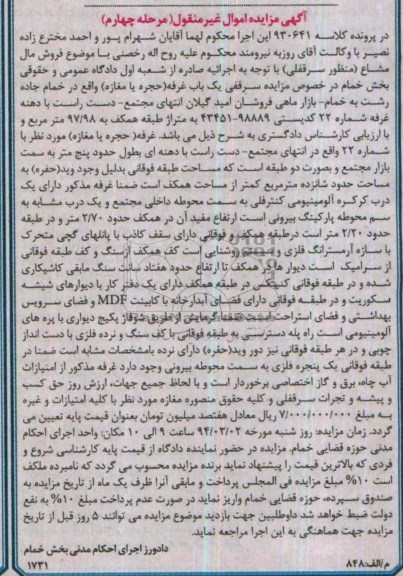 آگهی مزایده اموال غیر منقول( مرحله چهارم)
در پرونده کلاسه ۹۳۰۶۴۱ این اجرا محکوم لهما آقایان شهرام پور و احمد مخترع زاده
نصیر با وکالت آقای روزبه نیرومند محکوم علیه روح اله رخصتی با موضوع فروش مال
مشاع (منظور سرقفلی) با توجه به اجرائیه صادره از شعبه اول دادگاه عمومی و حقوقی
بخش خمام در خصوص مزایده سرقفلی یک باب غرفه(حجره یا مغازه) واقع در خمام جاده
رشت به خمام- بازار ماهی فروشان امید گیلان انتهای مجتمع- دست راست با دهنه
غرفه شماره ۲۲ کدپستی ۹۸۸۸۹-۴۳۴۵۱ به متراژ طبقه همکف به ۹۷/۹۸ متر مربع و
با ارزیابی کارشناس دادگستری به شرح ذیل می باشد. غرفه( حجره یا مغازه) مورد نظر با
شماره ۲۲ واقع در انتهای مجتمع- دست راست با دهنه ای بطول حدود پنج متر به سمت
بازار مجتمع و بصورت دو طبقه است که مساحت طبقه فوقانی بدلیل وجود وید(حفره) به
مساحت حدود شانزده مترمربع کمتر از مساحت همکف است ضمنا غرفه مذکور دارای یک
درب کرکره آلومینیومی کنترقلی به سمت محوطه داخلی مجتمع و یک درب مشابه به
سم محوطه پارکینگ بیرونی است ارتفاع مفید آن در همکف حدود ۲/۷۰ متر و در طبقه
حدود ۲/۲۰ متر است درطبقه همکف و فوقانی دارای سقف کاذب با پانلهای گچی متحرک
با سازه آرمسترانگ فلزی و روشنایی است کف همکف از سنگ و کف طبقه فوقانی
از سرامیک است دیوار ها در همکف تا ارتفاع حدود هفتاد سانت سنگ مابقی کاشیکاری
شده و در طبقه فوقانی کنیتکس در طبقه همکف دارای یک دفتر کار با دیوارهای شیشه
سکوریت و در طبقه فوقانی دارای فضای آبدارخانه با کابینت MDF و فضای سرویس
بهداشتی و فضای استراحت است گرمایش از طریق شوفاژ پکیج دیواری با پره های
آلومینیومی است راه پله دسترسی به طبقه فوقانی با کف سنگ و نرده فلزی با دست انداز
چوبی و در هر طبقه فوقانی نیز دور وید(حفره) دارای نرده بامشخصات مشابه است ضمنا در
طبقه فوقانی یک پنجره فلزی به سمت محوطه بیرونی وجود دارد غرفه مذکور از امتیازات
آب چاه، برق و گاز اختصاصی برخوردار است و با لحاظ جمیع جهات، ارزش روز حق کسب
و پیشه و تجرات سرقفلی و کلیه حقوق منصوره مغازه مورد نظر با کلیه امتیازات و غیره
به مبلغ ۷/۰۰۰/۰۰۰/۰۰۰ ریال معادل هفتصد میلیون تومان بعنوان قیمت پایه تعیین می
گردد. زمان مزایده: روز شنبه مورخه ۹۴/۰۳/۰۲ ساعت ۹ الی ۱۰ مکان: واحد اجرای احکام
مدنی حوزه قضایی خمام. مزایده در حضور نماینده دادگاه از قیمت پایه کارشناسی شروع و
فردی که بالاترین قیمت را پیشنهاد نماید برنده مزایده محسوب می گردد که نامبرده ملکف
است ۱۰% مبلغ مزایده فی المجلس پرداخت و مابقی آنرا ظرف یک ماه از تاریخ مزایده به
صندوق سپرده، حوزه قضایی خمام واریز نماید در صورت عدم پرداخت مبلغ ۱۰% به نفع
دولت ضبط خواهد شد داوطلبین جهت بازدید موضوع مزایده می توانند ۵ روز قبل از تاریخ
مزایده جهت هماهنگی به این اجرا مراجعه نماید.
دادورز اجرای احکام مدنی بخش خمام
م/الف:۸۴۸
۱۷۳۱